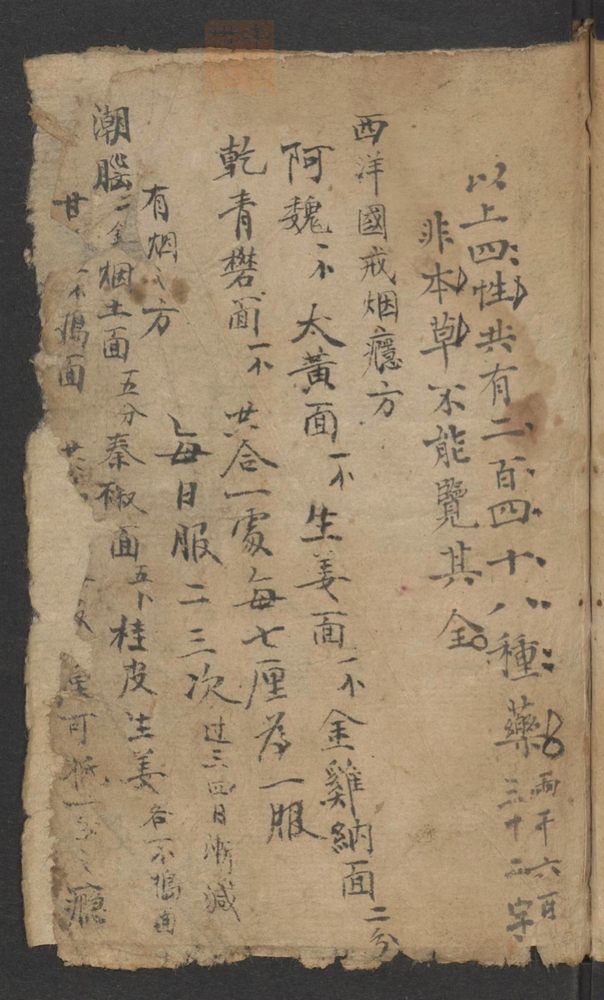 以上四性共有二百四十八種藥 兩千六百三十二字
非本草不能覽其全
西洋國戒烟癮方
阿魏一个太黃面一个生姜面一个金雞納面二分
乾青礬面一个共合一處每七厘為一服
每日服二三次过三四日漸減
有烟之方
潮腦二个烟土面五分秦椒面五卜桂皮生姜各一个搗面
甘 一个搗面 可抵一 之癮